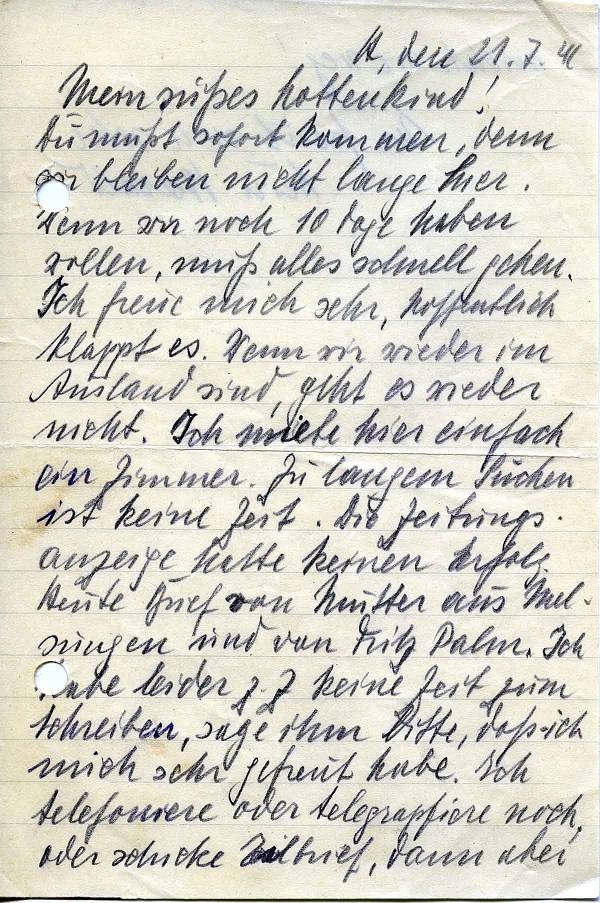 H, den 21.7.41
Mein süßes Mottenkind!
Du mußt sofort kommen, denn
wir bleiben nicht lange hier.
Wenn wir noch 10 Tage haben
wollen, muß alles schnell gehen.
Ich freue mich sehr, hoffentlich
klappt es. Wenn wir wieder im
Ausland sind, geht es wieder
nicht. Ich miete hier einfach
ein Zimmer. Zu langem Suchen
ist keine Zeit. Die Zeitungs-
anzeige hatte keinen Erfolg.
Heute Brief von Mutter aus Mel-
sungen und von Fritz Palm. Ich
habe leider z.Z keine Zeit zum
Schreiben, sage ihm bitte, daß ich
mich sehr gefreut habe. Ich
telefoniere oder telegraphiere noch,
oder schicke Eilbrief, dann aber